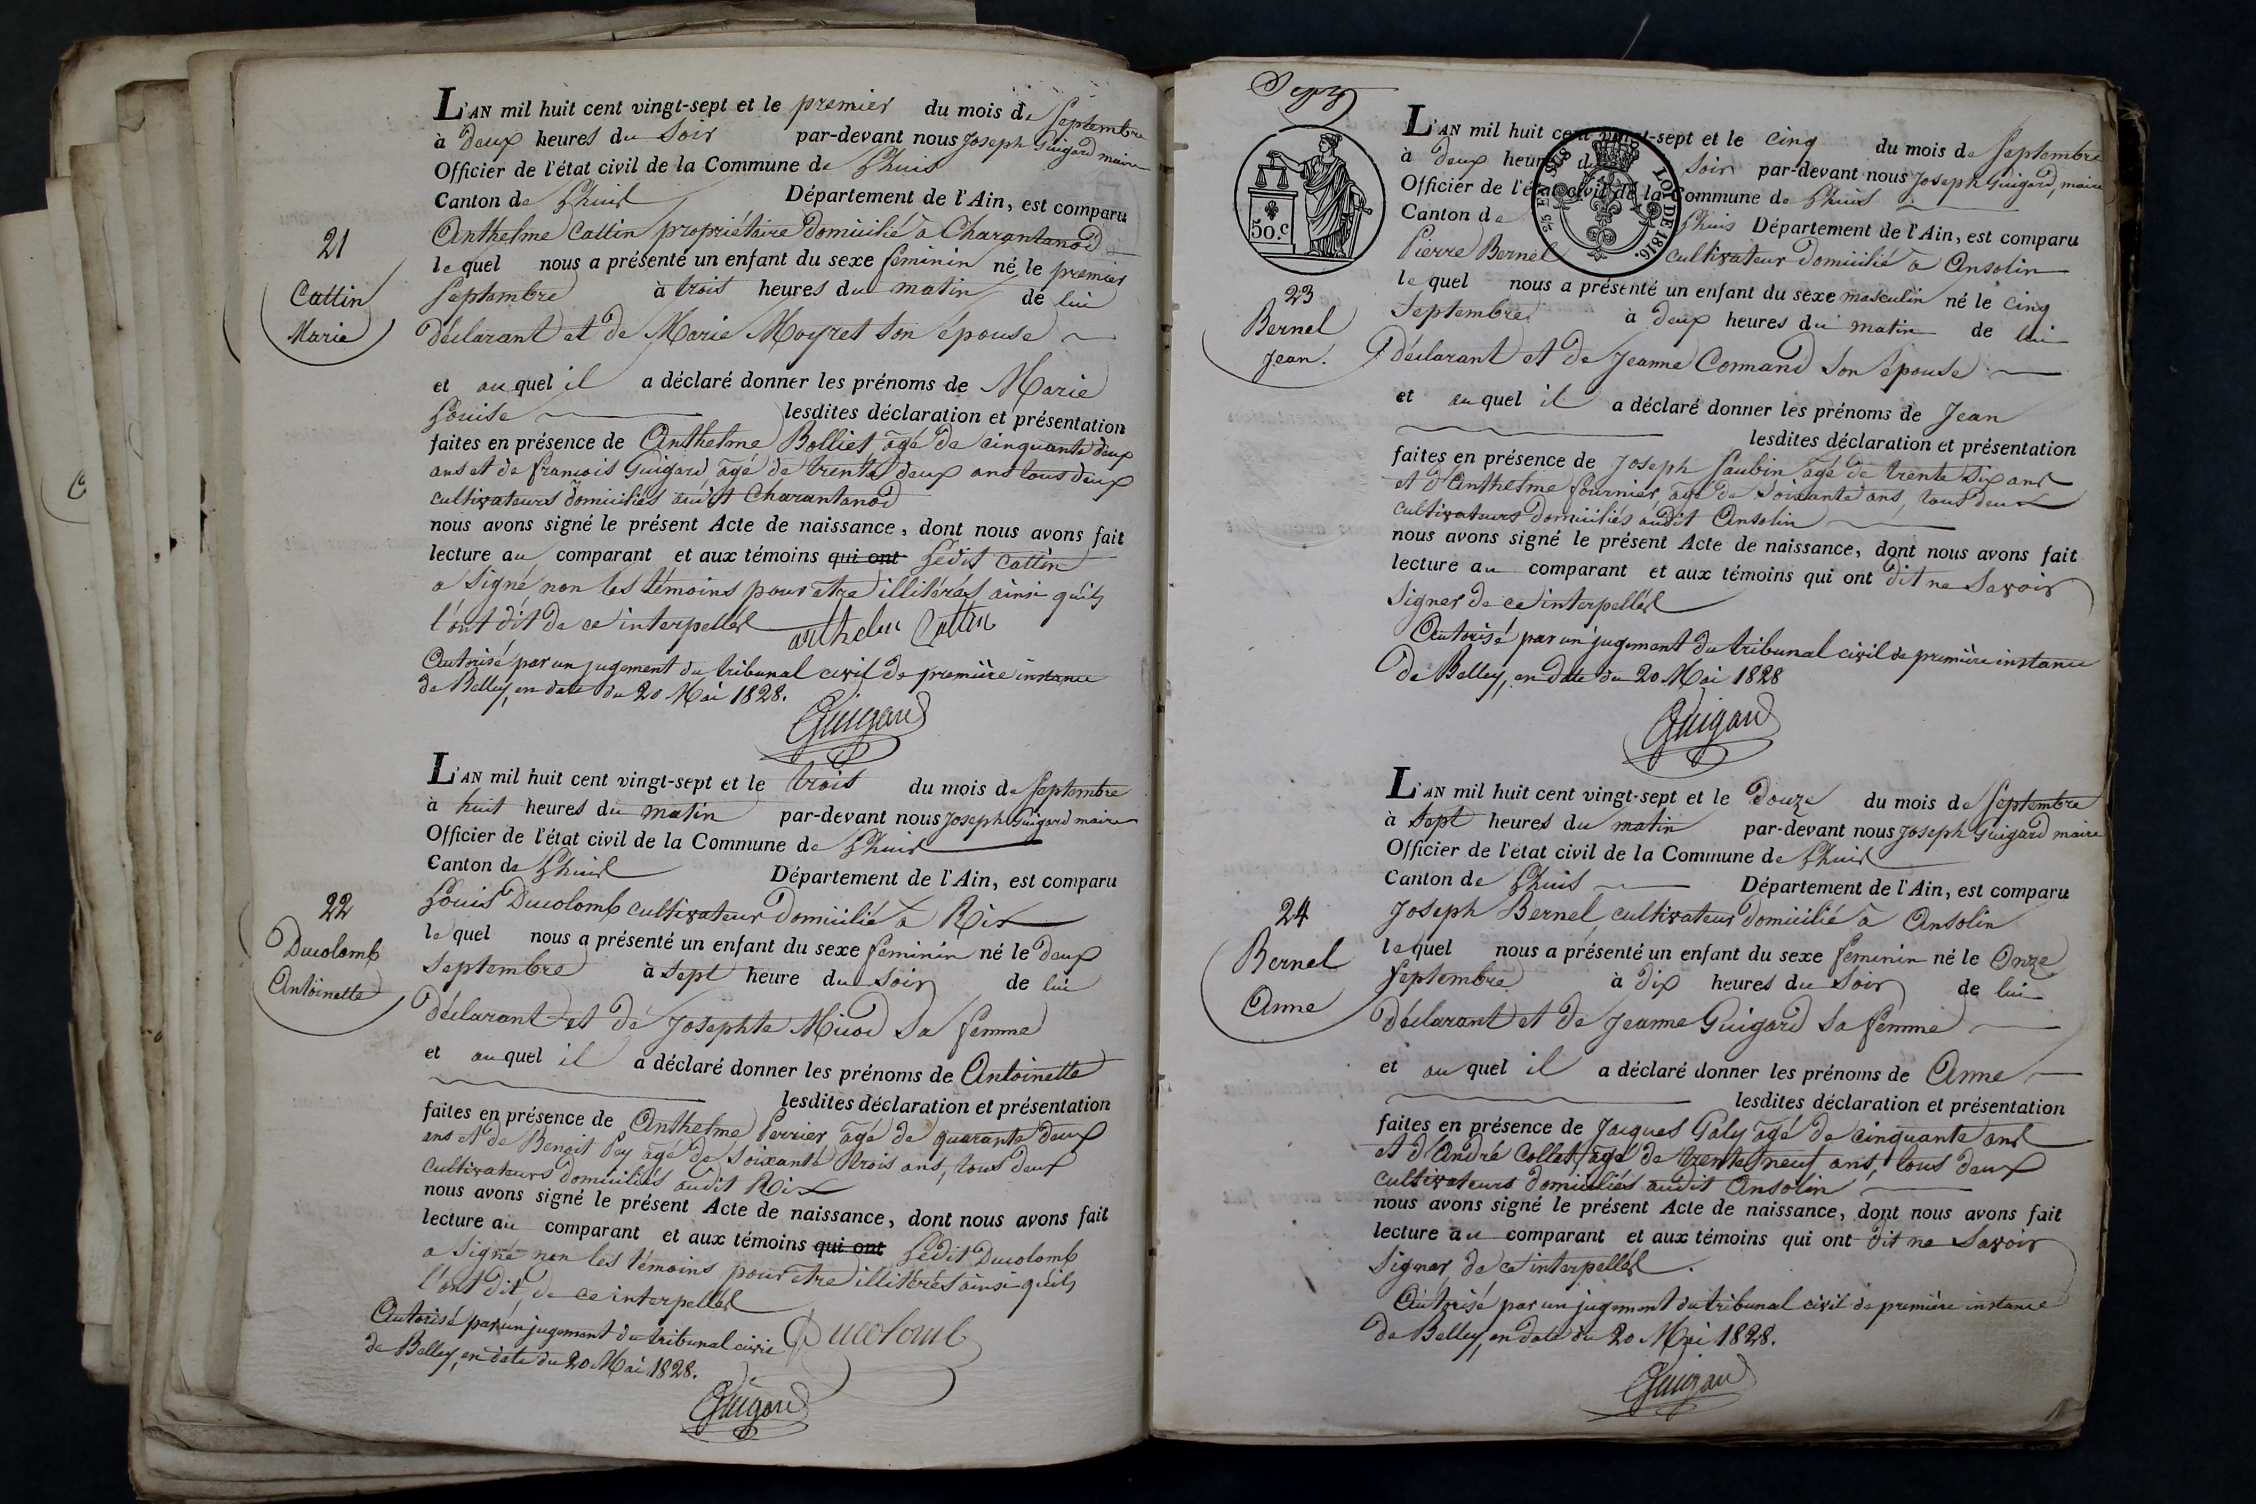 L'AN mil huit cent vingt-sept et le premier du mois de Septembre
à deux heures du Soir par-devant nous Joseph Guigard maire
Officier de l'état civil de la Commune de Lhuis
Canton de Lhuis Département de l'Ain, est comparu
Anthelme Cattin propriétaire domicilié à Charantanod
lequel nous a présenté un enfant du sexe féminin né le premier
Septembre à trois heures du matin de lui
déclarant et de Marie Moyret son épouse
et auquel il a déclaré donner les prénoms de Marie
Louise lesdites déclaration et présentation
faites en présence de Anthelme Bolliet âgé de cinquante deux
ans et de françois Guigard âgé de trente deux ans tous deux
cultivateurs domiciliés audit Charantanod
nous avons signé le présent Acte de naissance, dont nous avons fait
lecture au comparant et aux témoins qui ont Ledit Cattin
a signé non les témoins pour etre illitérés ainsi qu'ils
l'ont dit de ce interpellés anthelme Cattin
Autorisé par un jugement du tribunal civil de première instance
de Belley, en date du 20 Mai 1828.
Guigard
21
Cattin
Marie
L'AN mil huit cent vingt-sept et le trois du mois de Septembre
à huit heures du matin par-devant nous Joseph Guigard maire
Officier de l'état civil de la Commune de Lhuis
Canton de Lhuis Département de l'Ain, est comparu
Louis Ducolomb cultivateur domicilié à Rix
lequel nous a présenté un enfant du sexe féminin né le deux
Septembre à sept heure du soir de lui
déclarant et de Josephte Micod sa femme
et auquel il a déclaré donner les prénoms de Antoinette
lesdites déclaration et présentation
faites en présence de Anthelme Perrier âgé de quarante deux
ans et de Benoit Pey âgé de soixante trois ans, tous deux
cultivateurs domiciliés audit Rix
nous avons signé le présent Acte de naissance, dont nous avons fait
lecture au comparant et aux témoins qui ont Ledit Ducolomb
a signé non les témoins pour etre illitérés ainsi qu'ils
l'ont dit de ce interpellés
Autorisé par un jugement du tribunal civil Ducolomb
de Belley, en date du 20 Mai 1828.
Guigard
22
Ducolomb
Antoinette
L'AN mil huit cent vingt-sept et le cinq du mois de Septembre
à deux heures du soir par-devant nous Joseph Guigard, maire
Officier de l'état civil de la Commune de Lhuis
Canton de Lhuis Département de l'Ain, est comparu
Pierre Bernel cultivateur domicilié à Ansolin
lequel nous a présenté un enfant du sexe masculin né le cinq
Septembre à deux heures du matin de lui
déclarant et de Jeanne Connand son épouse
et auquel il a déclaré donner les prénoms de Jean
lesdites déclaration et présentation
faites en présence de Joseph Saubin âgé de trente six ans
et d'Anthelme fournier, âgé de soixante ans, tous deux
cultivateurs domiciliés audit Ansolin
nous avons signé le présent Acte de naissance, dont nous avons fait
lecture au comparant et aux témoins qui ont dit ne savoir
signer de ce interpellés
Autorisé par un jugement du tribunal civil de première instance
de Belley, en date du 20 Mai 1828
Guigard
50.c
25 EN SUS
LOI DE 1816.
23
Bernel
Jean.
L'AN mil huit cent vingt-sept et le douze du mois de Septembre
à sept heures du matin par-devant nous Joseph Guigard maire
Officier de l'état civil de la Commune de Lhuis
Canton de Lhuis Département de l'Ain, est comparu
Joseph Bernel, cultivateur domicilié à Ansolin
lequel nous a présenté un enfant du sexe féminin né le Onze
Septembre à dix heures du Soir de lui
déclarant et de Jeanne Guigard sa femme
et auquel il a déclaré donner les prénoms de Anne
lesdites déclaration et présentation
faites en présence de Jacques Galy âgé de cinquante ans
et d'André Collet, âgé de trente neuf ans, tous deux
cultivateurs domiciliés audit Ansolin
nous avons signé le présent Acte de naissance, dont nous avons fait
lecture au comparant et aux témoins qui ont dit ne savoir
signer de ce interpellés.
Autorisé par un jugement du tribunal civil de première instance
de Belley, en date du 20 Mai 1828.
Guigard
24
Bernel
Anne